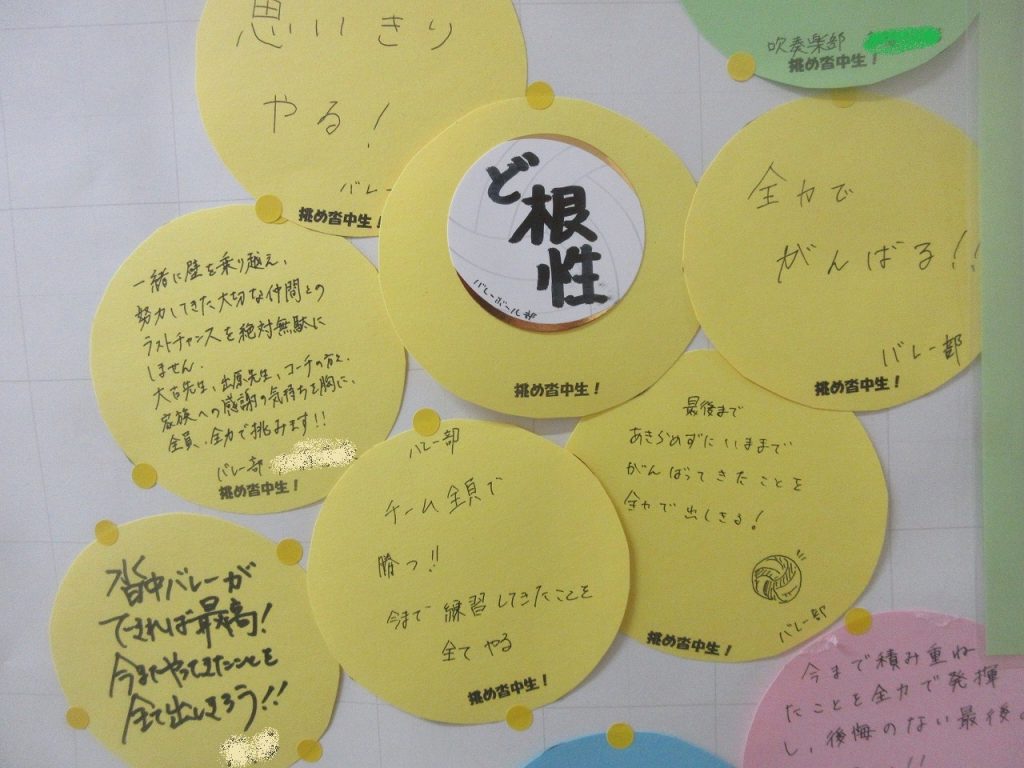 思いきり
やる!
バレー
挑め沓中生!
吹奏楽部
挑め沓中生!
ど
根
性
バレーボール部
挑め沓中生!
全力で
がんばる!!
バレー部
挑め沓中生!
一緒に壁を乗り越え、
努力してきた大切な仲間との
ラストチャンスを絶対無駄に
しません。
大古先生、出原先生、コーチの方々、
家族への感謝の気持ちを胸に、
全員、全力で挑みます!!
バレー部
挑め沓中生!
バレー部
チーム全員で
勝つ!!
今まで練習してきたことを
全てやる
挑め沓中生!
最後まで
あきらめずにいままで
がんばってきたことを
全力で出しきる!
バレー部
挑め沓中生!
沓中バレーが
できれば最高!
今までやってきたことを
全て出しきろう!!
今まで積み重ね
たことを全力で発揮
し、後悔のない最後の